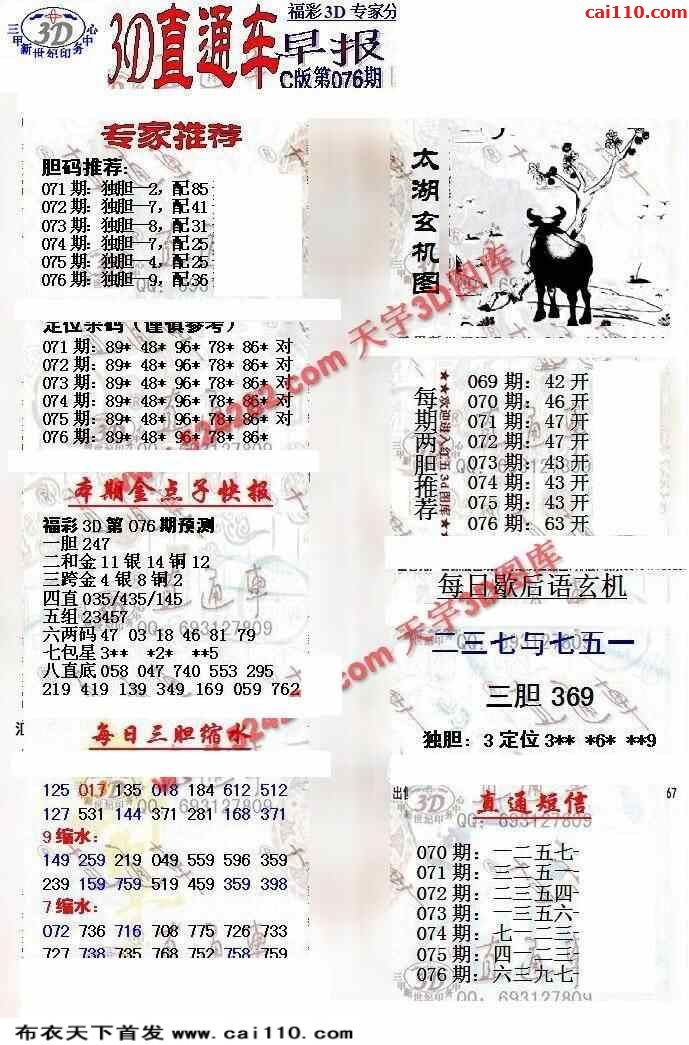 cai110.com
福彩3D专家分
三甲 3D 中心
新世纪印务
3D直通车早报
C版第076期
专家推荐
胆码推荐:
071期: 独胆—2, 配85
072期: 独胆—7, 配41
073期: 独胆—8, 配31
074期: 独胆—7, 配25
075期: 独胆—4, 配25
076期: 独胆—9, 配36
定位杀码(谨慎参考)
071期: 89* 48* 96* 78* 86* 对
072期: 89* 48* 96* 78* 86* 对
073期: 89* 48* 96* 78* 86* 对
074期: 89* 48* 96* 78* 86* 对
075期: 89* 48* 96* 78* 86* 对
076期: 89* 48* 96* 78* 86*
本期金点子快报
福彩3D第076期预测
一胆247
二和金11银14铜12
三跨金4银8铜2
四直035/435/145
五组23457
六两码47 03 18 46 81 79
七包星3** *2* **5
八直底058 047 740 553 295
219 419 139 349 169 059 762
每日三胆缩水
125 017 135 018 184 612 512
127 531 144 371 281 168 371
9缩水:
149 259 219 049 559 596 359
239 159 759 519 459 359 398
7缩水:
072 736 716 708 775 726 733
727 738 735 768 752 758 759
太湖玄机图
每期两胆推荐
★★欢迎进入红五3d图库★★
069期: 42开
070期: 46开
071期: 47开
072期: 47开
073期: 43开
074期: 43开
075期: 43开
076期: 63开
每日歇后语玄机
二三七与七五一
三胆 369
独胆: 3 定位3** *6* **9
67
直通短信
QQ: 693127809
070期: 一二五七
071期: 三二五一
072期: 二三五四
073期: 一三五六
074期: 七一二三
075期: 四一二三
076期: 六三九七
QQ: 693127809
布衣天下首发 www.cai110.com